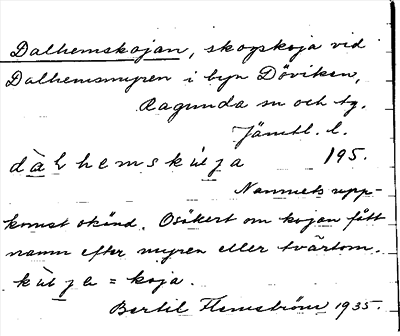 Dalhemskojan, skogskoja vid
Dalhemsmyren i byn Döviken,
Ragunda sn och tg.
Jämtl. l.
195.
Namnets upp-
komst okänd. Osäkert om kojan fått
namn efter myren eller tvärtom.
= koja.
Bertil Flemström 1935.